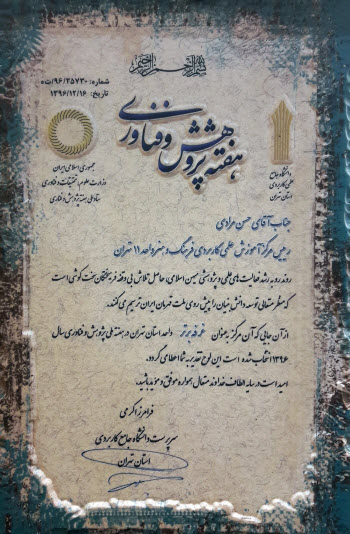 بسم الله الرحمن الرحیم
شماره: ۹۶/۲۵۷۳۰/ت‌ه
تاریخ: ۱۳۹۶/۱۲/۱۶
هفته پژوهش و فناوری
جمهوری اسلامی ایران
وزارت علوم، تحقیقات و فناوری
ستاد ملی هفته پژوهش و فناوری
دانشگاه جامع
علمی کاربردی
استان تهران
جناب آقای حسن مرادی
رییس مرکز آموزش علمی کاربردی فرهنگ و هنر واحد ۱۱ تهران
روند رو به رشد فعالیت‌های علمی و پژوهشی میهن اسلامی، حاصل تلاش بی وقفه فرهیختگان سخت کوشی است
که سفر متعالی توسعه دانش بنیان را پیش روی ملت قهرمان ایران ترسیم می‌کنند.
از آن جایی که آن مرکز به عنوان غرفه برتر واحد استان تهران در هفته ملی پژوهش و فناوری سال
۱۳۹۶ انتخاب شده است این لوح تقدیر به شما اعطا می گردد.
امید است در سایه الطاف خداوند متعال همواره موفق و موید باشید.
فرامرز اکرمی
سرپرست دانشگاه جامع کاربردی
استان تهران